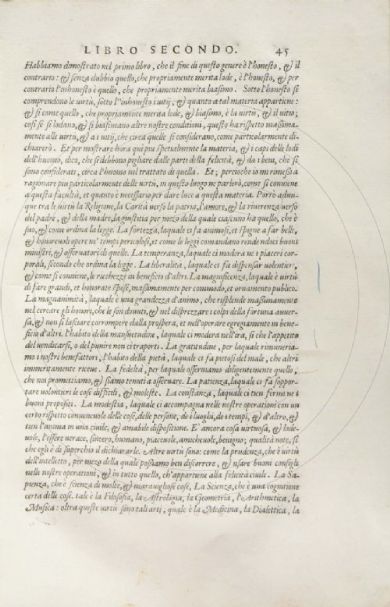 LIBRO SECONDO. 45
Habbiamo dimostrato nel primo libro, che il fine di questo genere è l'honesto, &) il
contrario: &) senza dubbio quello, che propriamente merita lode, è l'honesto, &) per
contrario l'inhonesto è quello, che propriamente merita biasimo. Sotto l'honesto si
comprendono le virtù, sotto l'inhonesto i vitij, &) quanto a tal materia appartiene:
&) si come quello, che propriamente merita lode, &) biasimo, è la virtù, &) il vitio;
così se si lodano, &) si biasimano altre nostre conditioni, questo ha rispetto massima-
mente alle virtù, &) a i vitij, che circa quelle si considerano, come particolarmente di-
chiarerò. Et per mostrare hora qui piu spetialmente la materia, &) i capi delle lodi
dell'huomo, dico, che si debbono pigliare dalle parti della felicità, &) da i beni, che si
sono considerati, circa l'honesto nel trattato di quella. Et; percioche io mi rimisi a
ragionare piu particolarmente delle virtù, in questo luogo ne parlerò, come si conviene
a questa facultà, et quanto è necessario per dare luce a questa materia. Porrò adun-
que tra le virtù la Religione, la Carità verso la patria, l'amore, &) la riverenza verso
del padre, &) della madre, la giustitia per mezo della quale ciascuno ha quello, che è
suo, &) come ordina la legge. La fortezza, laquale ci fa animosi, et spigne a far belli,
&) honorevoli opere ne' tempi pericolosi, et come le leggi comandano rende uduci buoni
ministri, &) osservatori di quelle. La temperanza, laquale ci modera ne i piaceri cor-
porali, secondo che ordina la legge. La liberalità, laquale ci fa dispensar volentieri,
&) come si conviene, le ricchezze in beneficio d'altri. La magnificenza, laquale è virtù
di fare grandi, et honorate spese, massimamente per commodo, et ornamento publico.
La magnanimità, laquale è una grandezza d'animo, che risplende massimamente
nel cercare gli honori, che le son dovuti, &) nel disprezzare i colpi della fortuna aver-
sa, &) non si lasciare corrompere dalla prospera, et nell'operare egregiamente in bene-
ficio d'altri. L'habito della mansuetudine, laquale ci modera nell'ira, sì che l'appetito
del vendicarsi, o del punire non ci traporti. La gratitudine, per laquale rimuneria-
mo i nostri benefattori, l'habito della pietà, laquale ci fa pietosi del male, che altri
immeritamente riceve. La fedeltà, per laquale osserviamo diligentemente quello,
che noi promettiamo, &) siamo tenuti a osservare. La patienza, laquale ci fa sppor-
tare volontieri le cose difficili, &) moleste. La constanza, laquale ci tien fermi ne i
buoni propositi. La modestia, laquale ci accompagna nelle nostre operationi con un
certo rispetto convenevole delle cose, delle persone, de i luoghi, de i tempi, &) d'altro, &)
tien l'animo in una civile, &) amabile dispositione. E' ancora cosa virtuosa, &) lode-
vole, l'essere verace, sincero, humano, piacevole, amichevole, benigno; qualità note, sì
che egli è di superchio il dichiararle. Altre virtù sono: come la prudenza, che è virtù
dell'intelletto, per mezo della quale possiamo ben discorrere, &) usare buoni consigli
nelle nostre operationi, &) in tutto quello, ch'appartiene alla felicità civile. La Sa-
pienza, che è scienza di molte, &) maravigliose cose, La Scienza, che è una cognitione
certa delle cose. tale è la Filosofia, la Astrologia, la Geometria, l'Arithmetica, la
Musica: oltra queste virtù sono tali arti, quale è la Medicina, la Dialettica, la